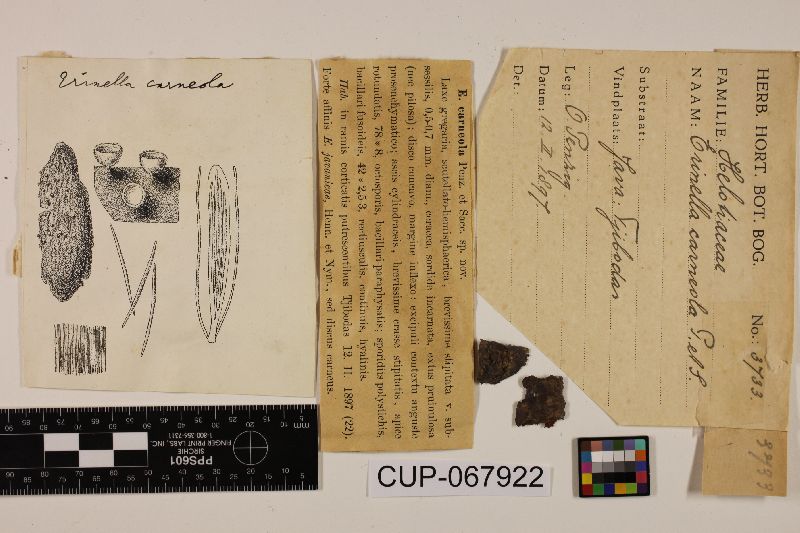 Erinella carneola
E. carneola Penz. et Sacc. sp. nov.
Laxe gregaria, scutellato-hemisphaerica, brevissime stipitata v. sub-
sessilis, 0,5-0,7 mm. diam., ceracea, sordide incarnata, extus pruinulosa
(nec pilosa); disco concavo, margine inflexo; excipuli contextu anguste
prosenchymatico; ascis cylindraceis, brevissime crasse stipitatis, apice
rotundatis, 78 * 8, octosporis, bacillari-paraphysatis; sporidiis polystichis,
bacillari-fusoideis, 42 * 2,5-3, rectiusculis, continuis, hyalinis.
Hab. in ramis corticatis putrescentibus Tjibodas 12. II. 1897 (22).
Forte affinis E. javanicae, Henn. et Nym., sed discus carneus.
HERB. HORT. BOT. BOG. No.: 3733
FAMILIE: Helotiaceae
NAAM: Erinella carneola P. et S.
Substraat:
Vindplaats: Java. Tjibodas
Leg: O. Penzig
Datum: 12 II 1897
Det.:
3733
CUP-067922
mm
5 10 15 20 25 30 35 40 45 50 55 60 65 70 75 80 85 90
PPS601
SIRCHIE
FINGER PRINT LABS, INC
1-800-356-7311